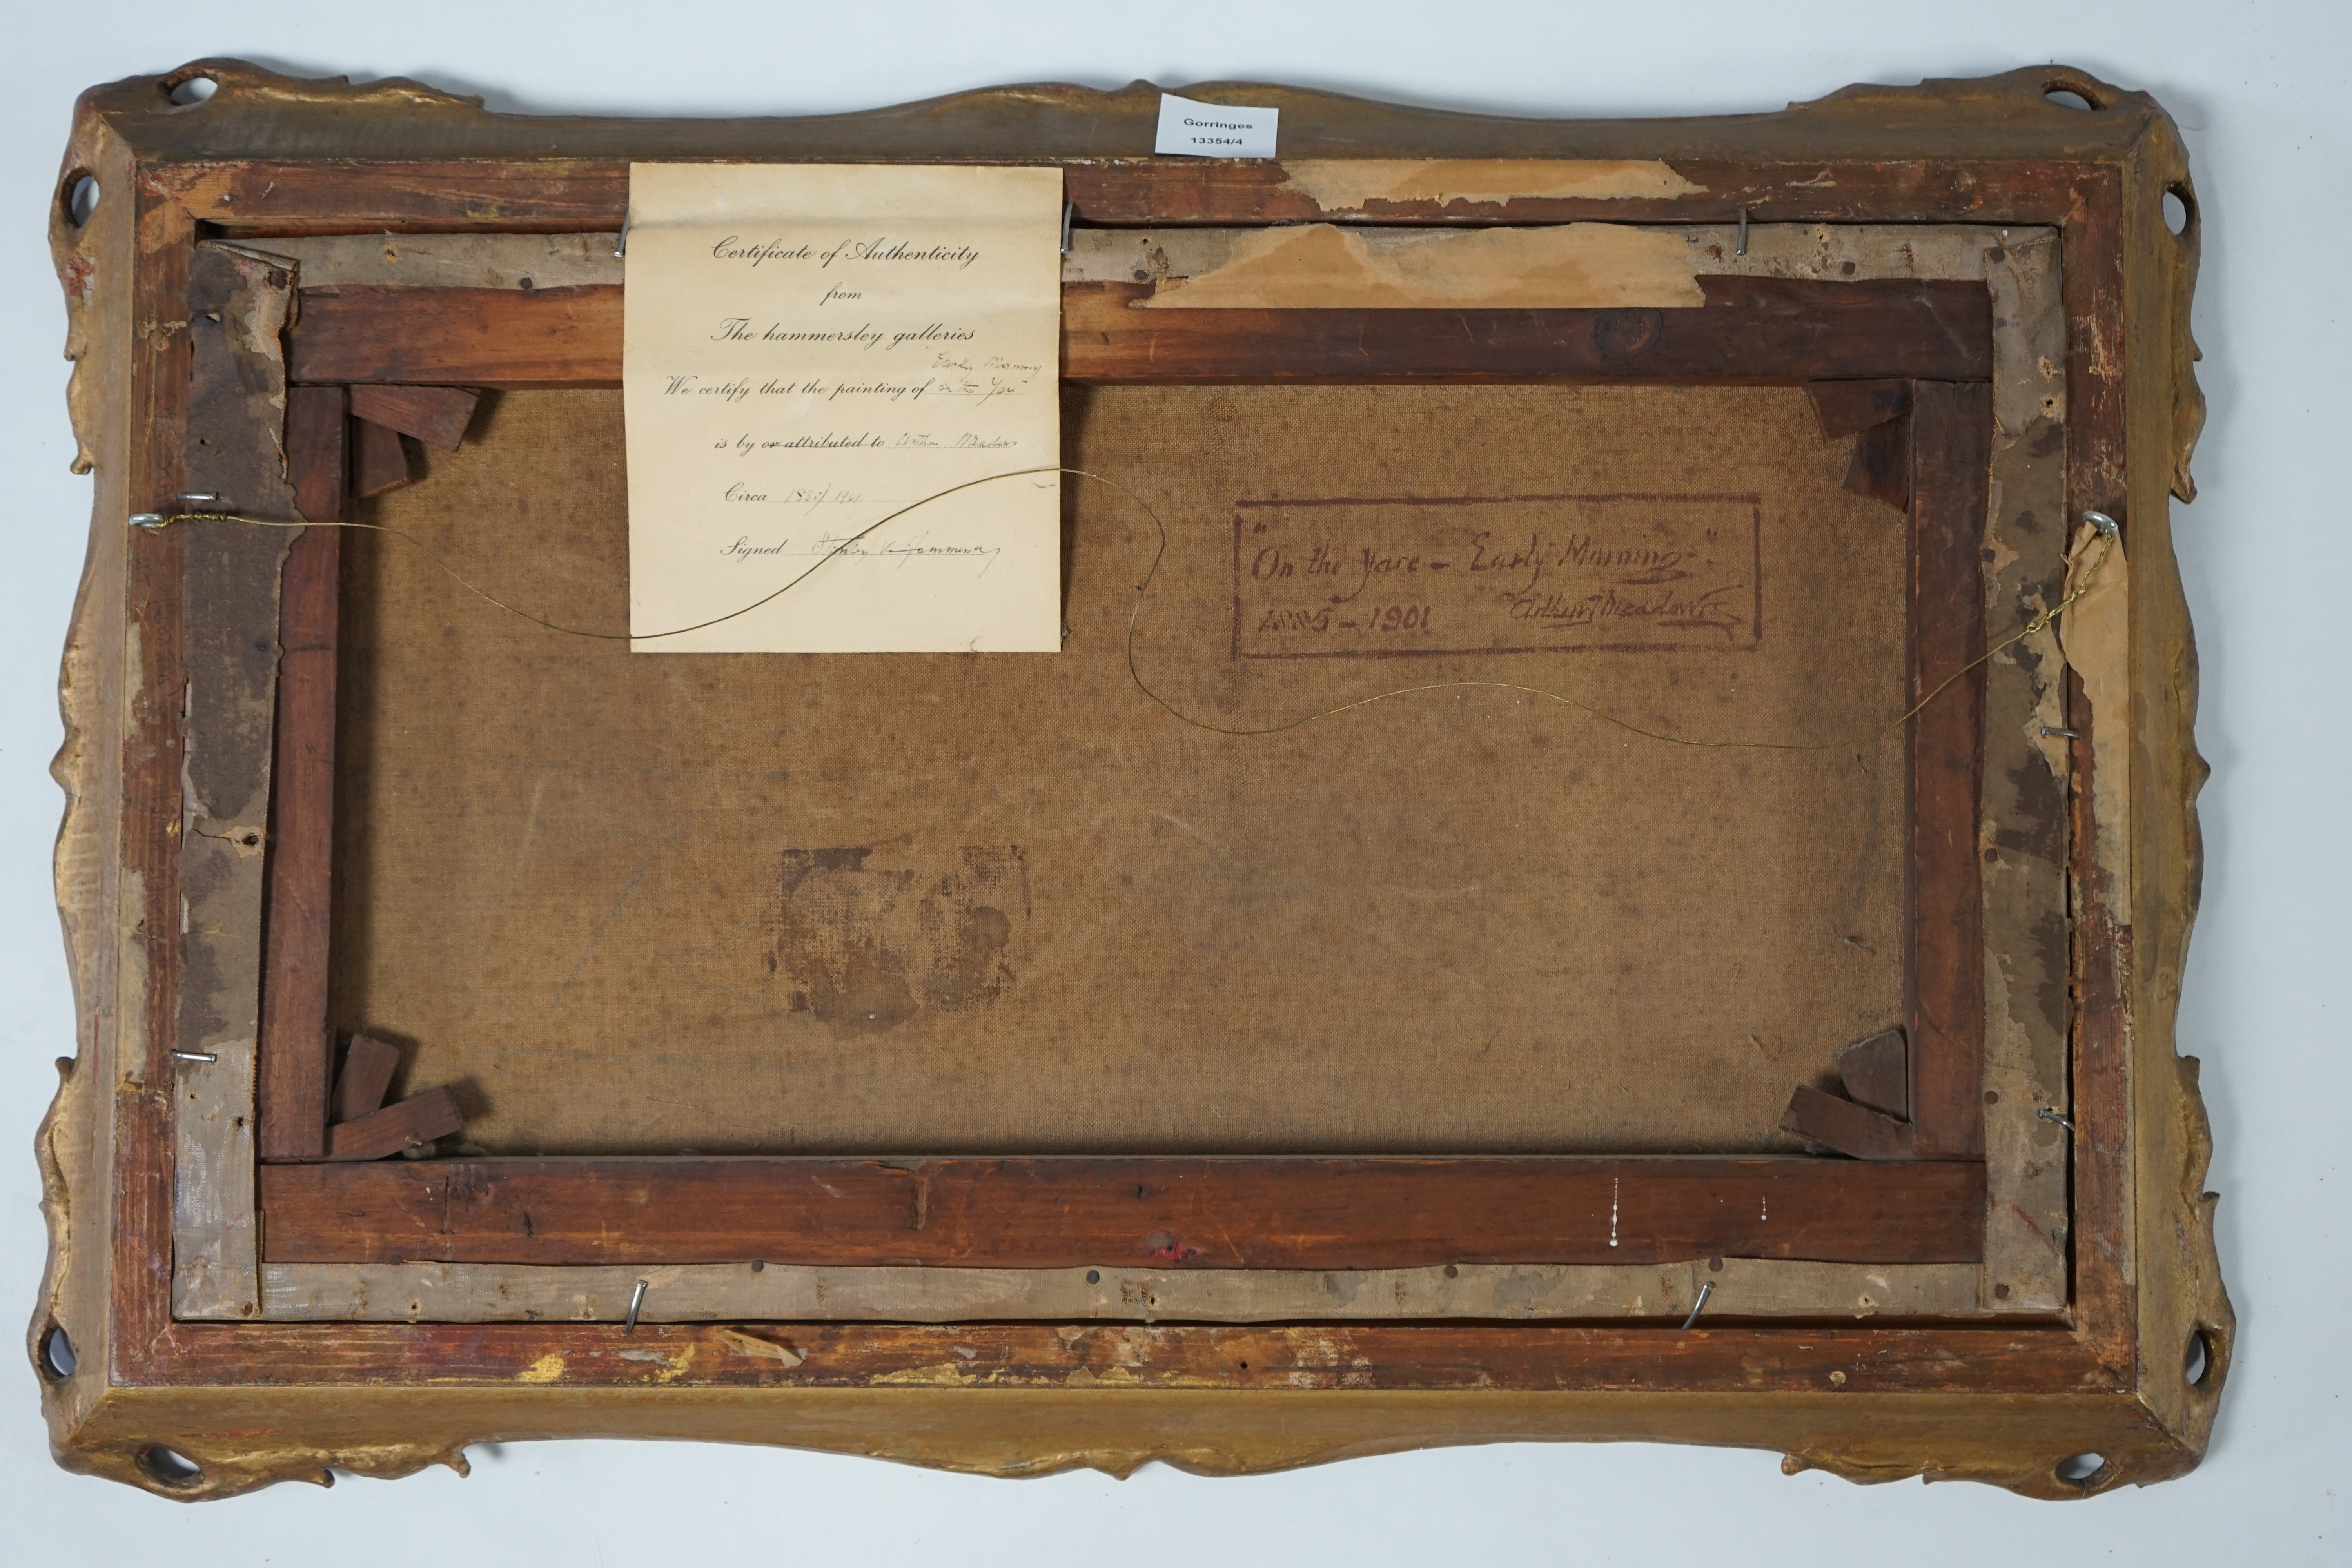 Gorringes
13354/4
Certificate of Authenticity
from
The hammersley galleries
Early Morning
We certify that the painting of on the Yare
is by or attributed to Arthur Meadows
Circa 1885/1901
Signed Stanley
"On the Yare - Early Morning."
1885 - 1901 Arthur Meadows